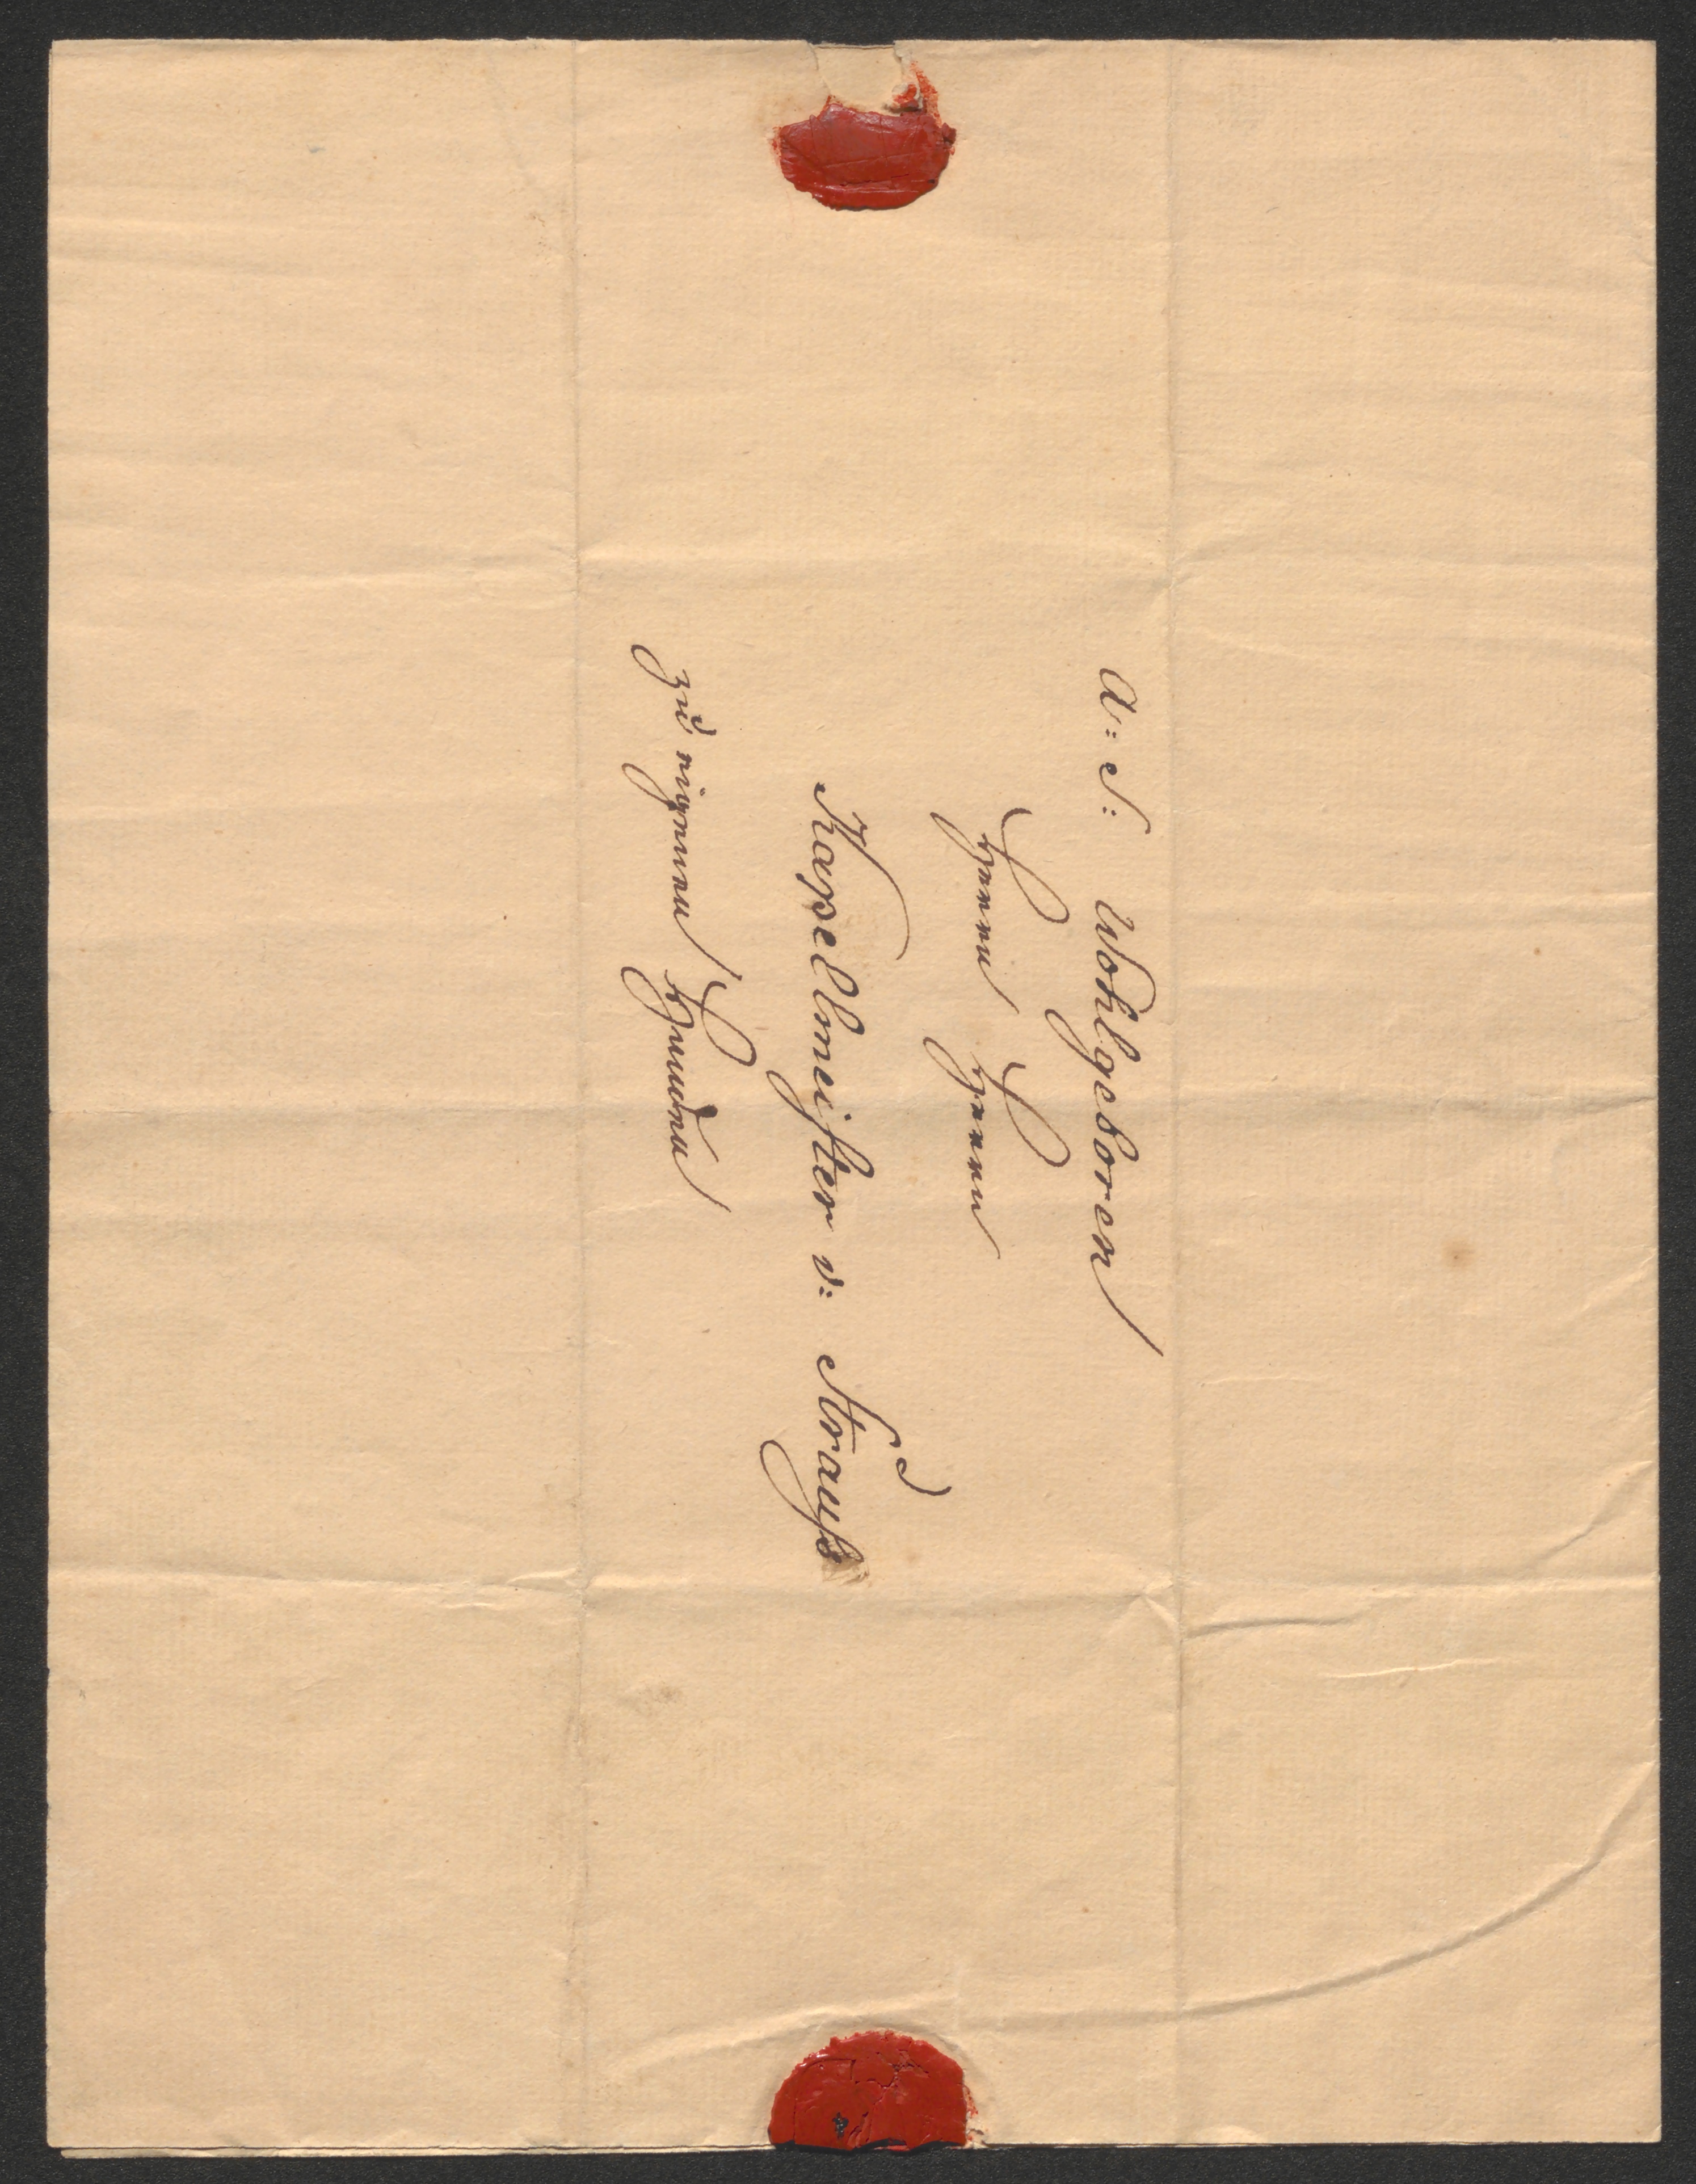 A: S: Wohlgeboren
Herrn Herrn
Kapellmeister v: Strauß
zu eigenen Handen